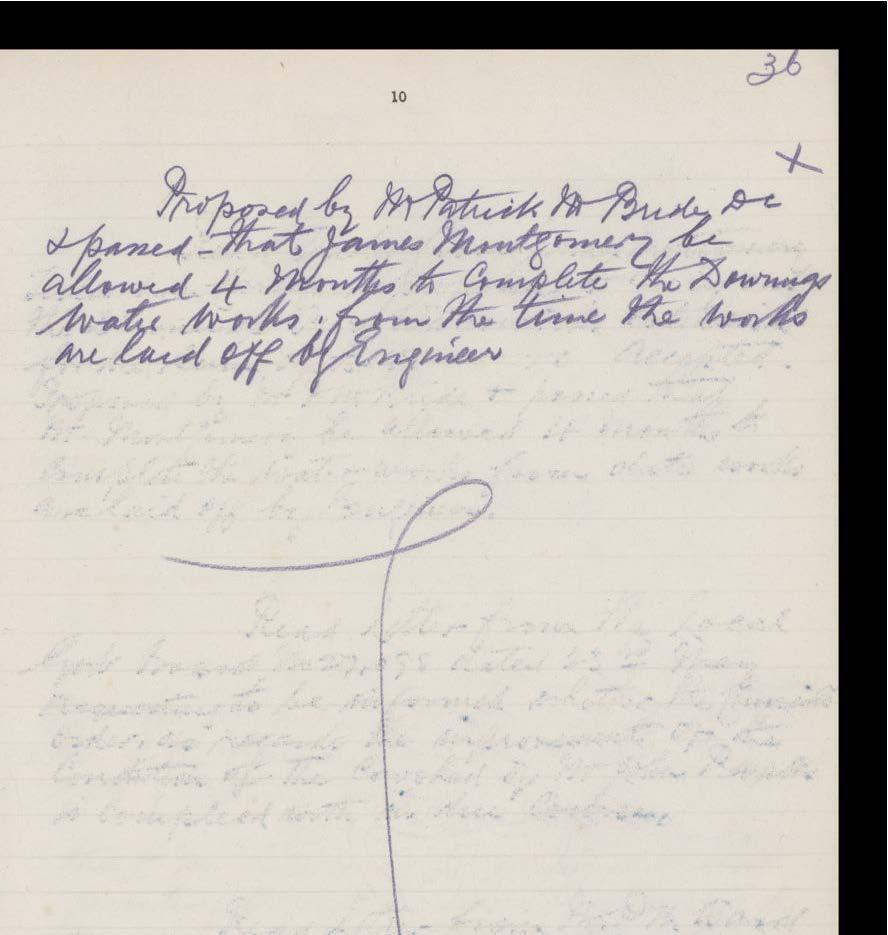 36
10
x
Proposed by Mr Patrick Mc Bride Dc
& passed - that James Montgomery be
allowed 4 Months to Complete the Downings
Water Works . from the time the works
are laid off by Engineer
Accepted.
Proposed by Mr & passed that
Mr Montgomery be allowed months to
Complete the water works from works
are laid off by Engineer.
Read letter from the Local
Govt Board dated 23rd May
requesting to be informed whether the
order as regards the improvement of the
Condition of the Cowshed by Mr John
is complied with
Read letter from